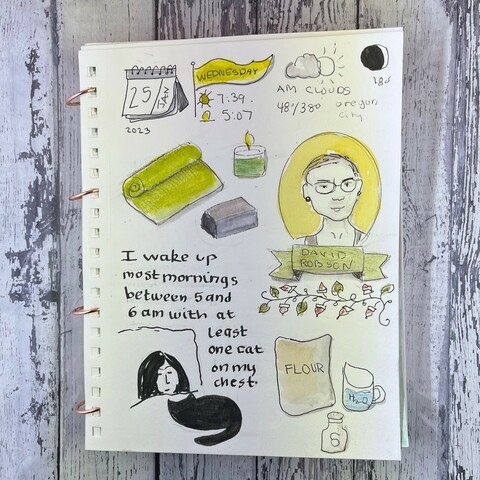 25
JAN
2023
WEDNESDAY
7:39
5:07
AM CLOUDS
48°/38° oregon
city
18%
DAVID
ROBSON
I wake up
most mornings
between 5 and
6 am with at
least
one cat
on my
chest.
FLOUR
H₂O
S